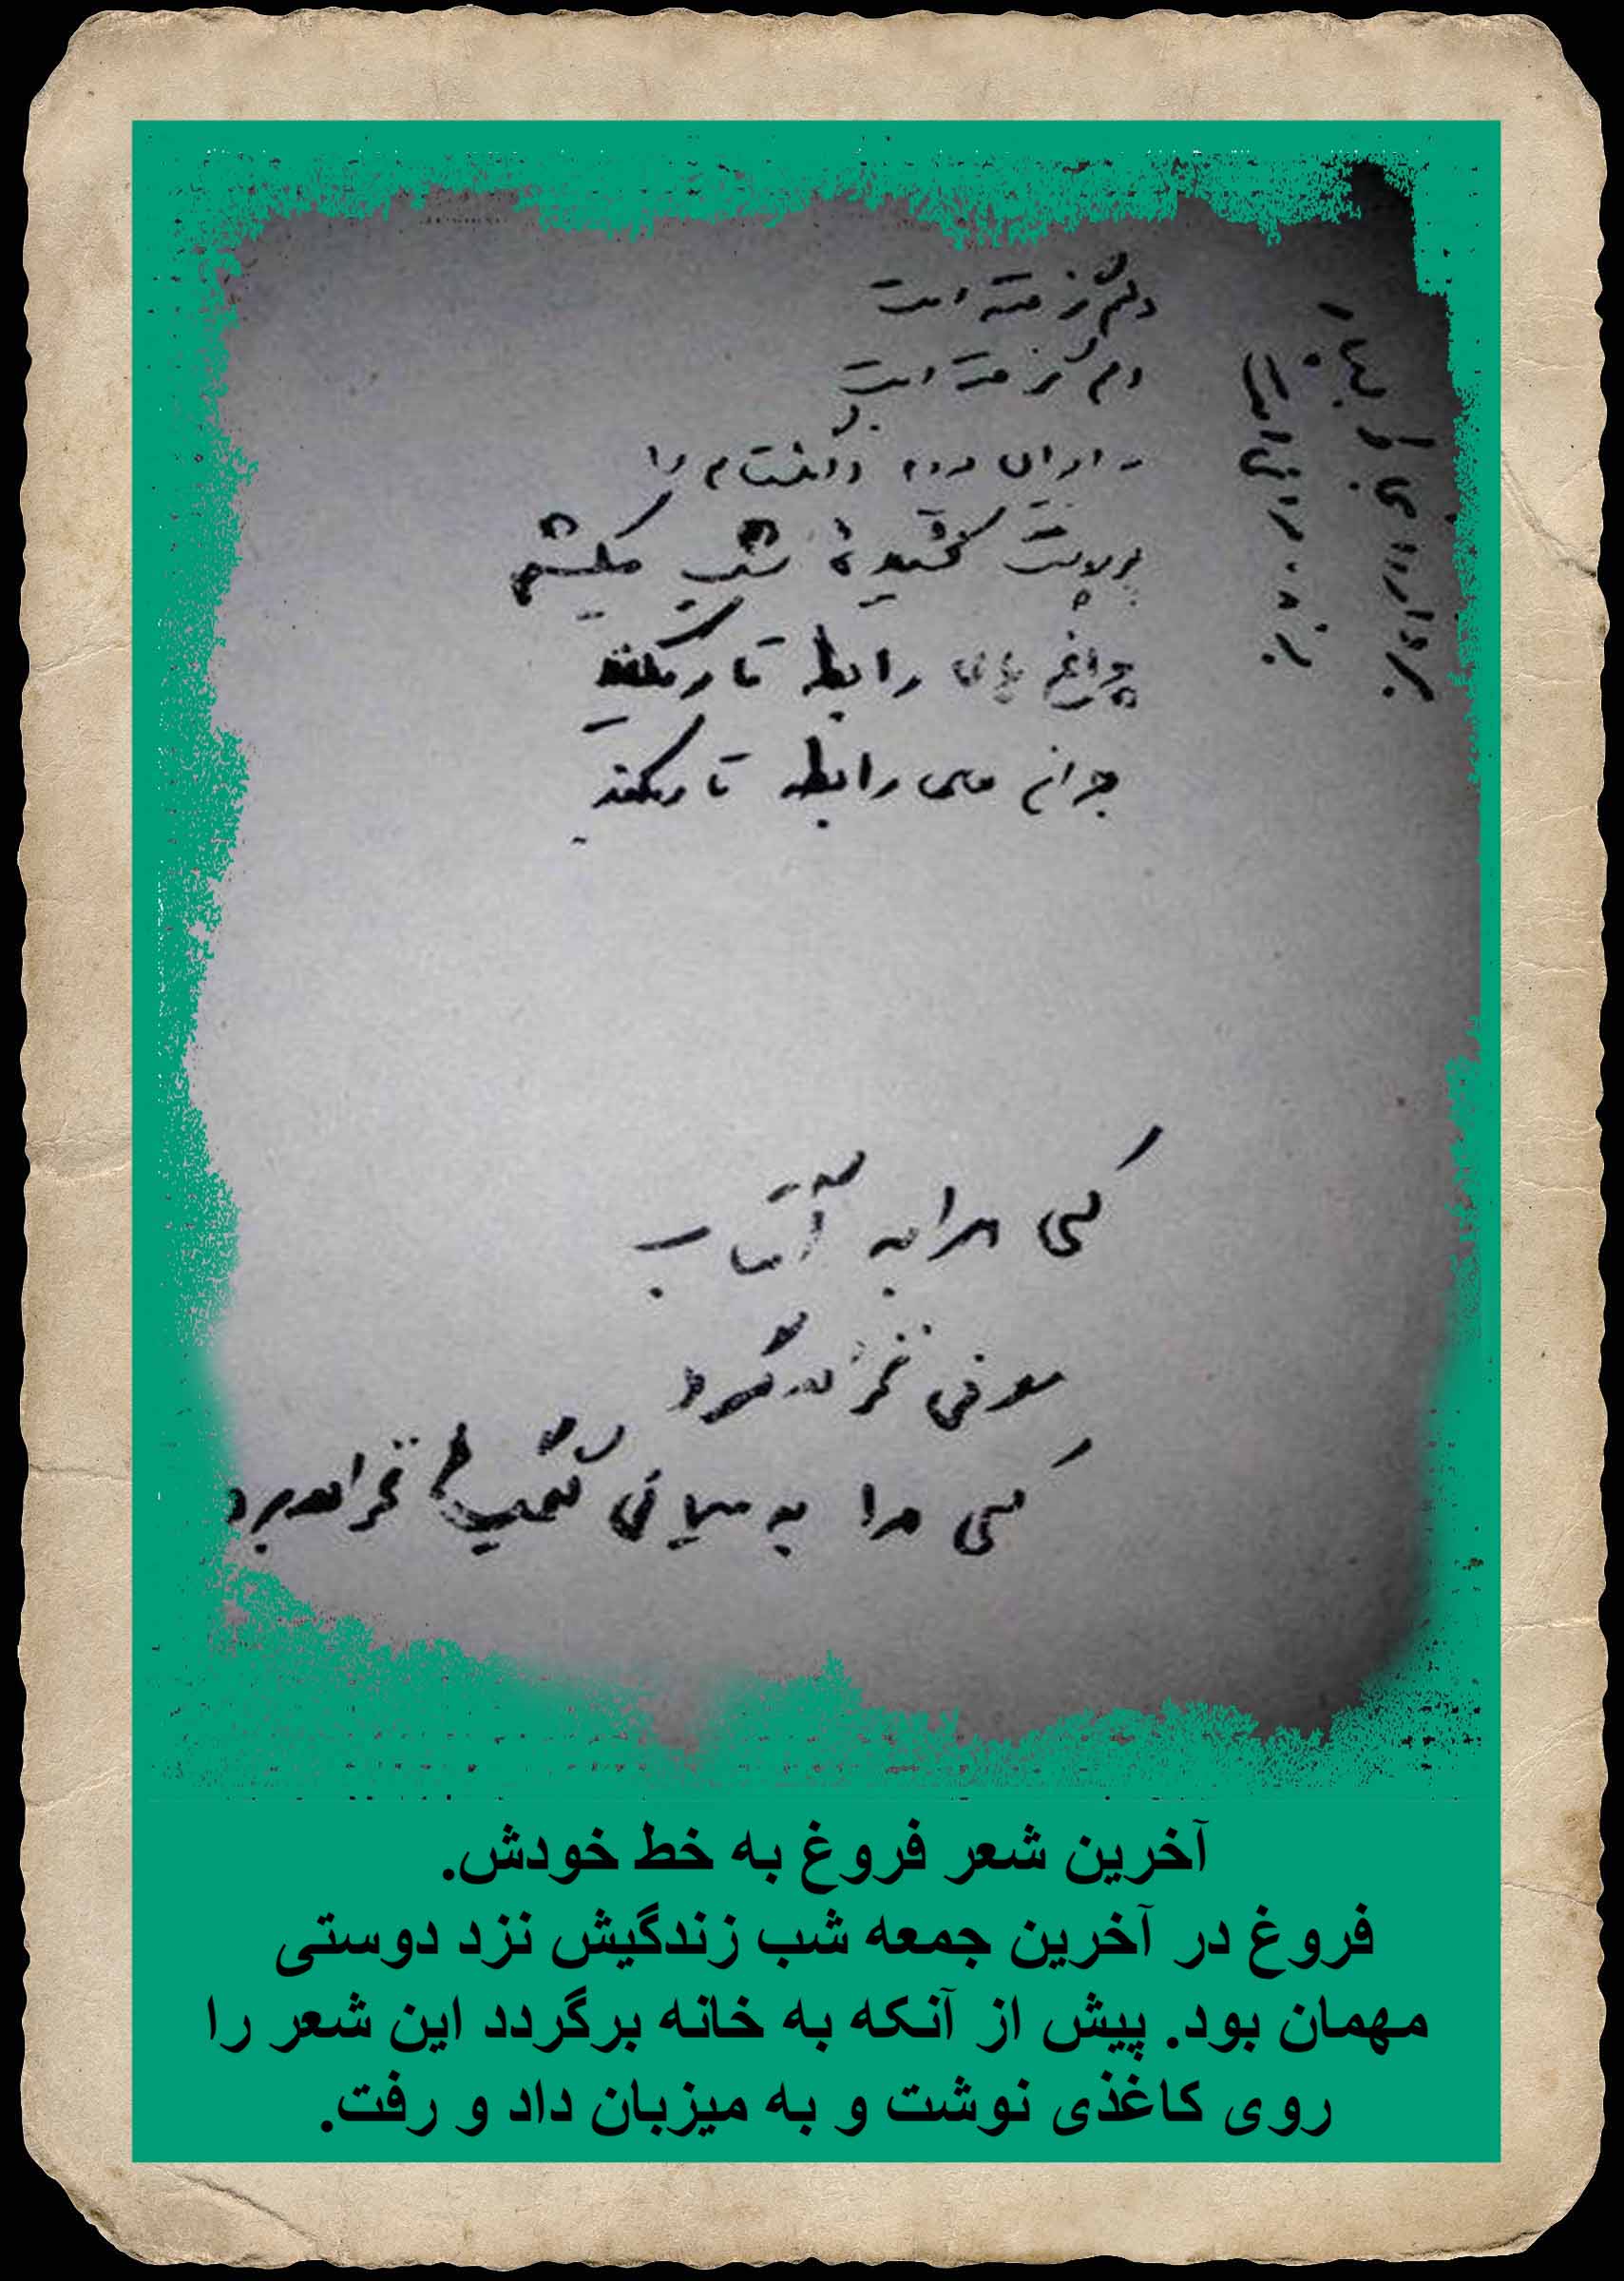 دلم گرفته است
دلم گرفته است
به ایوان میروم و انگشتانم را
بر پوست کشیدهٔ شب میکشم
چراغ های رابطه تاریکند
چراغ های رابطه تاریکند
کسی مرا به آفتاب
معرفی نخواهد کرد
کسی مرا به میهمانی گنجشک ها نخواهد برد
آخرین شعر فروغ به خط خودش.
فروغ در آخرین جمعه شب زندگیش نزد دوستی
مهمان بود. پیش از آنکه به خانه برگردد این شعر را
روی کاغذی نوشت و به میزبان داد و رفت.